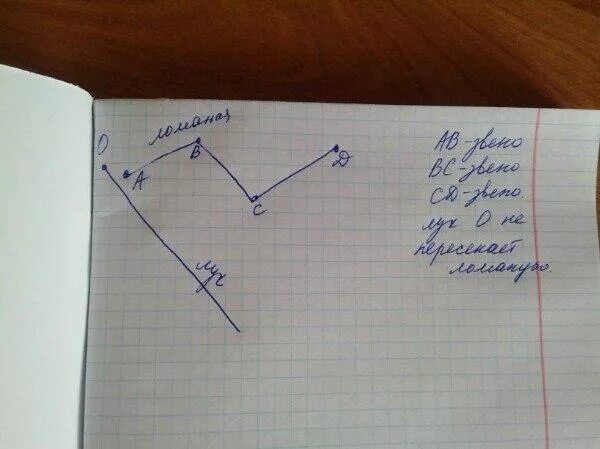 ломаная
O
A
B
C
D
луч
AB-звено
BC-звено
CD-звено.
луч O не
пересекает
ломаную.